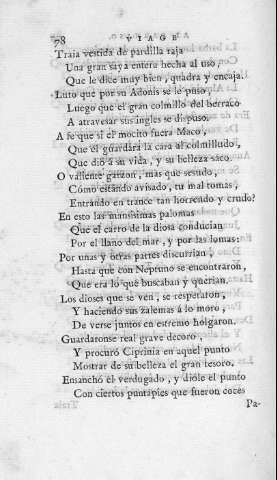 78 VIAGE
Traia vestida de pardilla raja
Una gran saya entera hecha al uso,
Que le dice muy bien, quadra y encaja.
Luto que por su Adonis se le puso,
Luego que el gran colmillo del berraco
A atravesar sus ingles se dispuso.
A fe que si el mocito fuera Maco,
Que él guardára la cara al colmilludo,
Que dió á su vida, y su belleza saco.
O valiente garzon, mas que sesudo,
Cómo estando avisado, tu mal tomas,
Entrando en trance tan horrendo y crudo?
En esto las mansisimas palomas
Que el carro de la diosa conducian
Por el llano del mar, y por las lomas:
Por unas y otras partes discurrian,
Hasta que con Neptuno se encontraron,
Que era lo que buscaban y querian.
Los dioses que se ven, se respetaron,
Y haciendo sus zalemas á lo moro,
De verse juntos en estremo holgaron.
Guardaronse real grave decoro,
Y procuró Ciprinia en aquel punto
Mostrar de su belleza el gran tesoro.
Ensanchó el verdugado, y dióle el punto
Con ciertos puntapies que fueron coces
Pa-